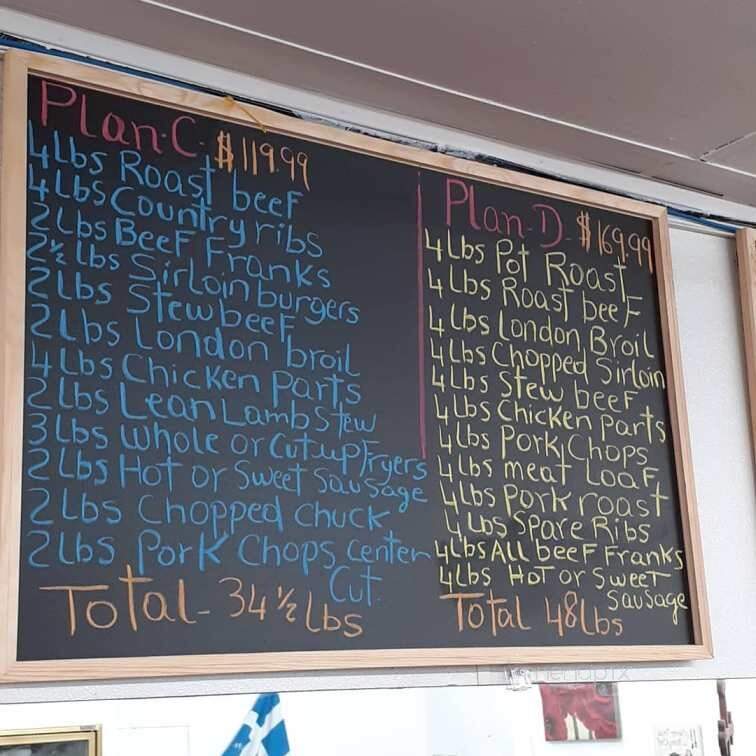 Plan-C- $119.99
4Lbs Roast beeF
4LbsCountry ribs
2Lbs BeeF Franks
2½ Lbs Sirloin burgers
2Lbs Stew beeF
2Lbs London broil
4Lbs Chicken Parts
2Lbs Lean Lamb Stew
3Lbs Whole or Cutup Fryers
2Lbs Hot or Sweet Sausage
2 Lbs Chopped Chuck
2Lbs Pork Chops center
Cut
Total- 34½ Lbs
Plan-D- $169.99
4Lbs Pot Roast
4Lbs Roast beeF
4Lbs London Broil
4Lbs Chopped Sirloin
4Lbs Stew beeF
4Lbs Chicken Parts
4Lbs Pork Chops
4Lbs meat LoaF
4Lbs Pork roast
4Lbs Spare Ribs
4Lbs All beeF Franks
4Lbs Hot or Sweet
Sausage
Total 48Lbs